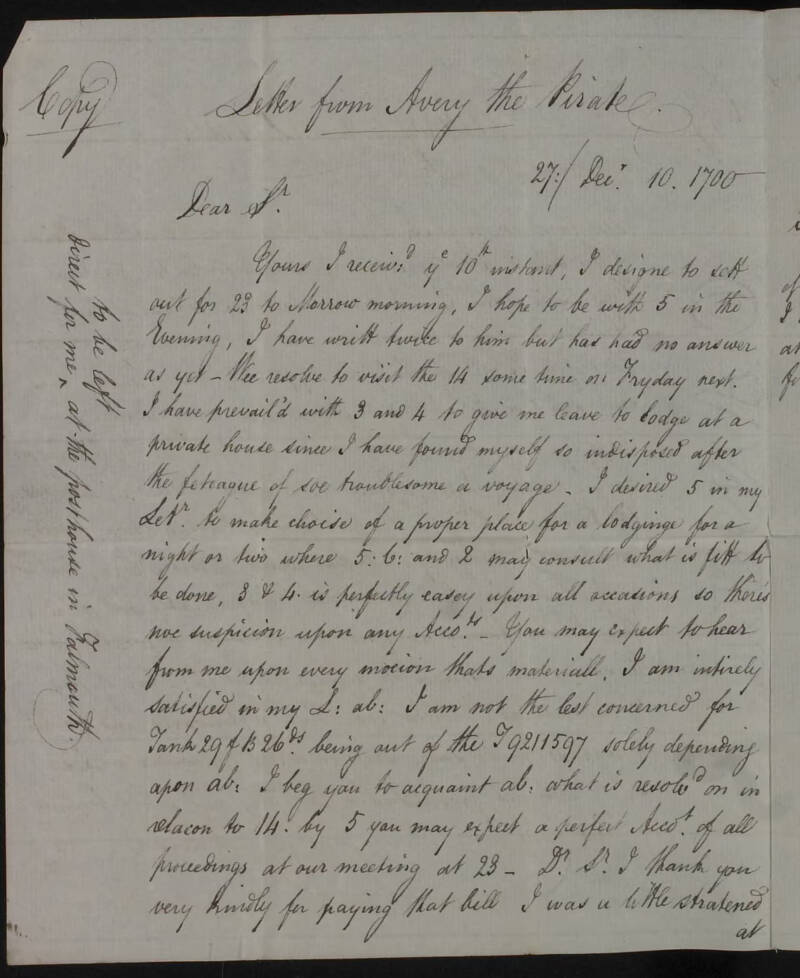 Copy
Letter from Avery the Pirate.
27:/ Decr. 10. 1700
Dear Sr.
Yours I receiv:d ye 10th instant, I designe to sett
out for 23 to Morrow morning, I hope to be with 5 in the
Evening, I have writt twice to him but has had no answer
as yet – Wee resolve to visit the 14 some time on Fryday next.
I have prevail'd with 3 and 4 to give me leave to lodge at a
private house since I have found myself so indisposed after
the feteague of soe troublesome a voyage – I desired 5 in my
Letr. to make choise of a proper place for a lodginge for a
night or two where 5: 6: and 2 may consult what is fitt to
be done, 3 & 4. is perfectly easey upon all occasions so there's
noe suspicion upon any Accots. – You may expect to hear
from me upon every mocion thats materiall, I am intirely
satisfied in my L: ab: I am not the lest concerned for
Tank 29 f B 26ds. being out of the T9211597 solely depending
upon ab: I beg you to acquaint ab: what is resolv'd on in
relacon to 14. by 5 you may expect a perfect Accot. of all
proceedings at our meeting at 23 – Dr. Sr. I thank you
very kindly for paying that bill I was a little stratened
at
to be left
direct for me ^ at the posthouse in Falmouth.